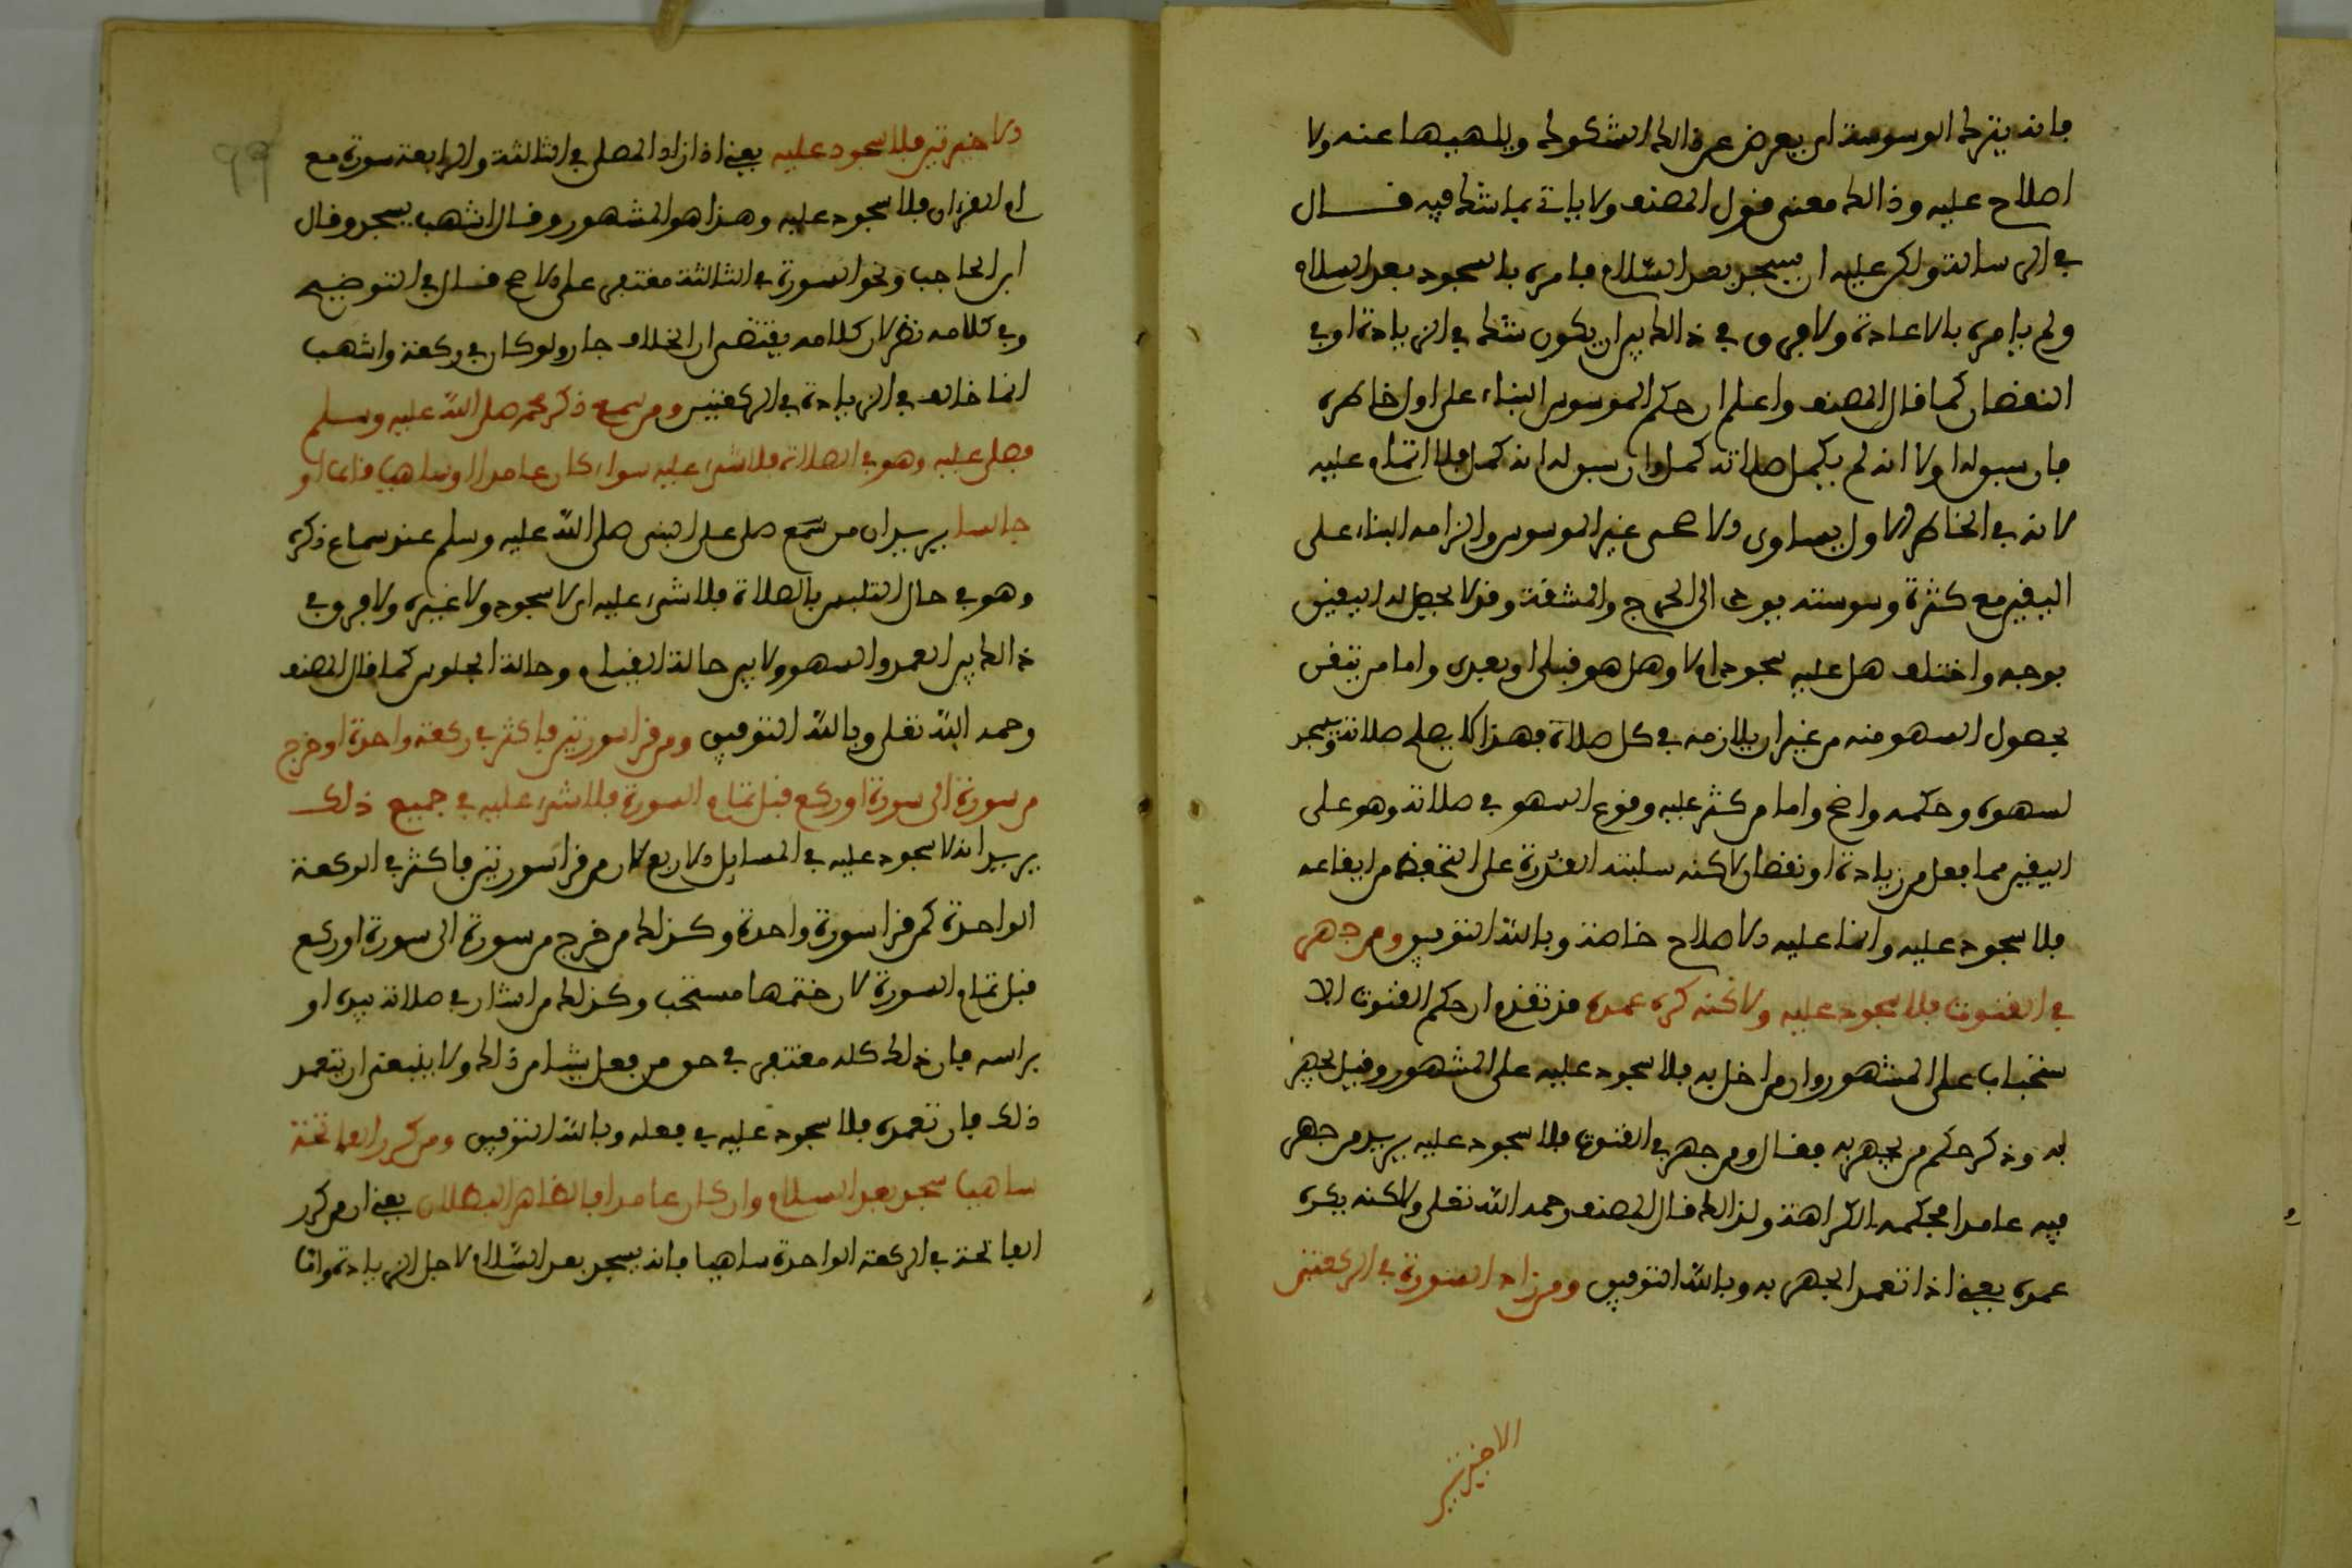 فانه يترك الوسوسة اي يعرض عن ذالك الشكوك ويلهيها عنه ولا
اصلاح عليه وذالك معنى قول المصنف ولا ياتي بما شك فيه قال
في الرسالة ولكن عليه ان يسجد بعد السلام فامره بالسجود بعد السلام
ولم يامره بالاعادة ولا فرق في ذالك بين ان يكون شك في الزيادة او في
النقصان كما قال المصنف واعلم ان حكم الموسوس البناء على اول خاطره
فان سبق له اولا انه لم يكمل صلاته كمل وان سبق له انه كمل فلا اتمام عليه
لانه في الخاطر الاول يساوي غير الموسوس والزامه البناء على
اليقين مع كثرة وسوسته يودي الى الحرج والمشقة وقد لا يحصل له اليقين
بوجه واختلف هل عليه سجود ام لا وهل هو قبلي او بعدي واما من تيقن
بحصول السهو منه من غير ان يلازمه في كل صلاة فهذا يصلح صلاته ويسجد
لسهوه وحكمه واضح واما من كثر عليه وقوع السهو في صلاته وهو على
اليقين مما فعل من زيادة او نقصان لاكنه سلبته القدرة على التحفظ من ايقاعه
فلا سجود عليه وانما عليه الاصلاح خاصة وبالله التوفيق ومن جهر
في القنوت فلا سجود عليه ولاكنه كره عمده قد تقدم ان حكم القنوت الا
ستحباب على المشهور وان من اخل به فلا سجود عليه على المشهور وقيل يجهر
به وذكر حكم من يجهر به فقال ومن جهر في القنوت فلا سجود عليه يريد من جهر
فيه عامدا فحكمه الكراهة ولذالك قال المصنف رحمه الله تعلى ولاكنه يكره
عمده يعني اذا تعمد الجهر به وبالله التوفيق ومن زاد السورة في الركعتين
الاخيرتين
99
الاخيرتين فلا سجود عليه يعني اذا زاد المصلي في الثالثة والرابعة سورة مع
ام القرءان فلا سجود عليه وهذا هو المشهور وقال اشهب يسجد وقال
ابن الحاجب ونحو السورة في الثالثة مغتفر على الاصح قال في التوضيح
وفي كلامه نظر لان كلامه يقتضي ان الخلاف جار ولو كان في ركعة واشهب
انما خالف في الزيادة في الركعتين ومن سمع ذكر محمد صلى الله عليه وسلم
فصلى عليه وهو في الصلاة فلا شيء عليه سواء كان عامدا او ساهيا قائما او
جالسا يريد ان من سمع صلى على النبي صلى الله عليه وسلم عند سماع ذكره
وهو في حال التلبس بالصلاة فلا شيء عليه اي لا سجود ولا غيره ولا فرق في
ذالك بين العمد والسهو ولا بين حالة القيام وحالة الجلوس كما قال المصنف
رحمه الله تعلى وبالله التوفيق ومن قرا سورتين فاكثر في ركعة واحدة او خرج
من سورة الى سورة او ركع قبل تمام السورة فلا شيء عليه في جميع ذلك
يريد انه لا سجود عليه في المسايل الاربع لان من قرا سورتين فاكثر في الركعة
الواحدة كمن قرا سورة واحدة وكذلك من خرج من سورة الى سورة او ركع
قبل تمام السورة لان ختمها مستحب وكذلك من اشار في صلاته بيده او
براسه فان ذلك كله مغتفر في حق من فعل شيئا من ذالك ولا ينبغي ان يتعمد
ذلك فان تعمده فلا سجود عليه في فعله وبالله التوفيق ومن كرر الفاتحة
ساهيا سجد بعد السلام وان كان عامدا فالظاهر البطلان يعني ان من كرر
الفاتحة في الركعة الواحدة ساهيا فانه يسجد بعد السلام لاجل الزيادة وان